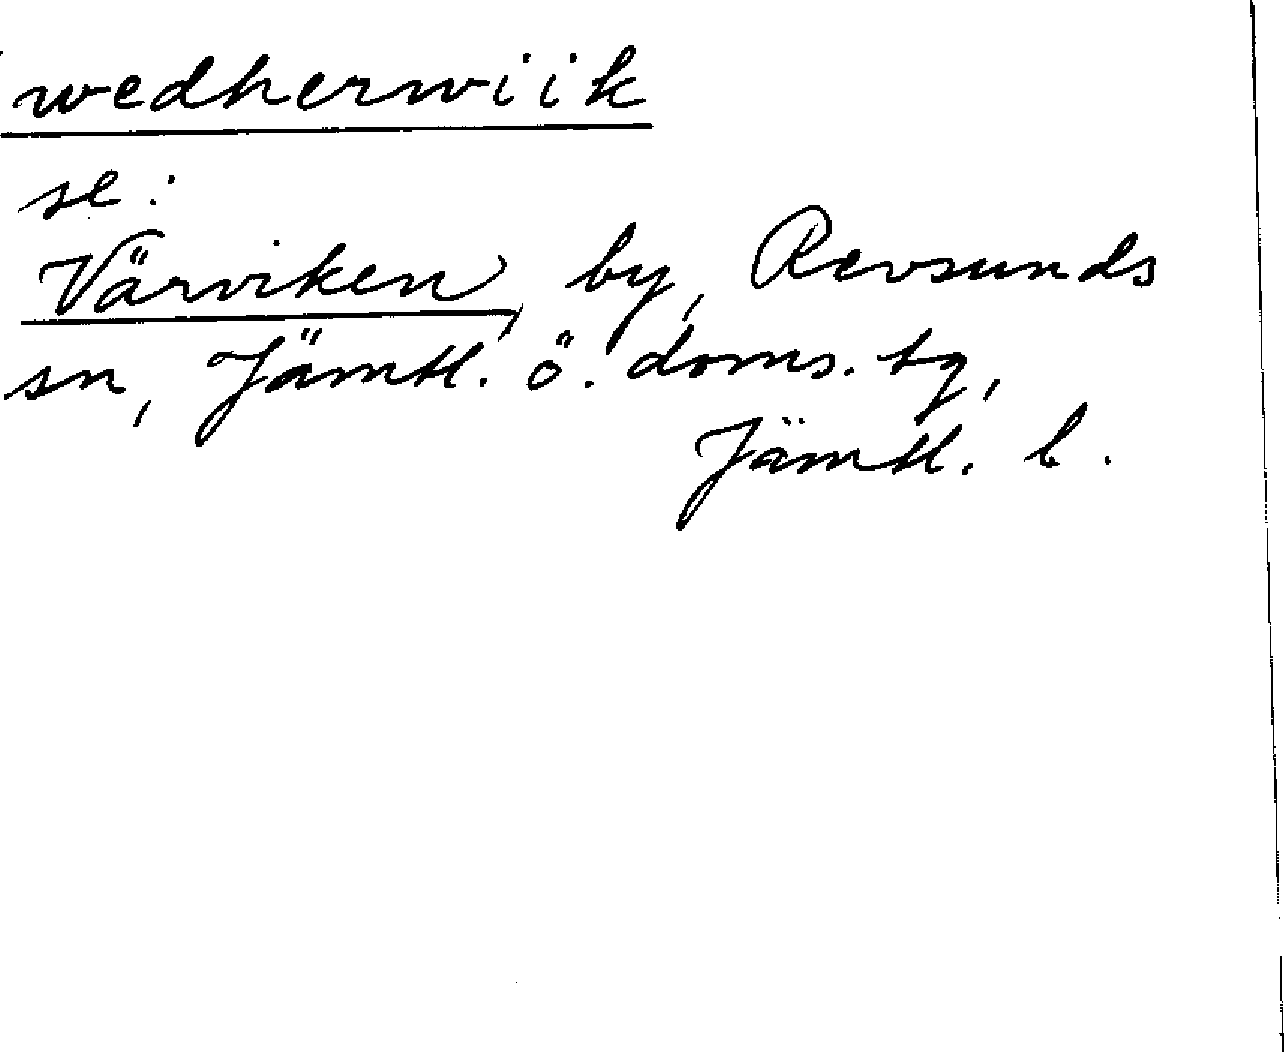 wedherwiik
se:
Värviken, by, Revsunds
sn, Jämtl. ö. doms. tg,
Jämtl. l.